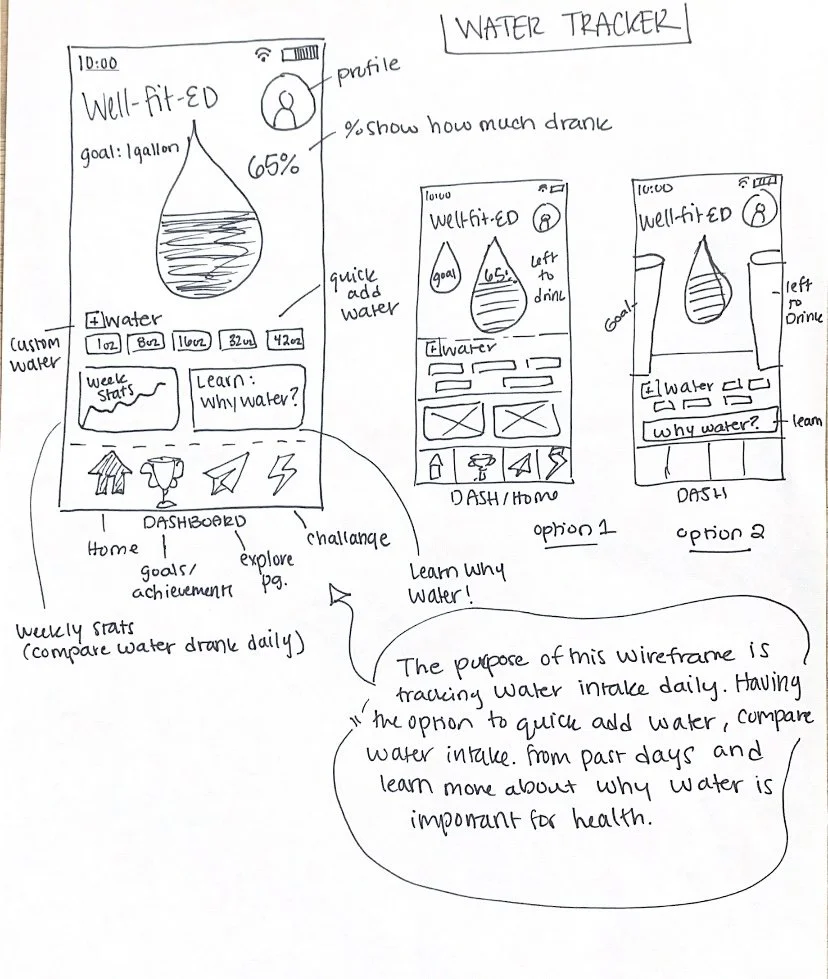 WATER TRACKER
10:00
Well-fit-ED
profile
goal: 1 gallon
65%
% show how much drank
quick
add
water
custom
water
+ water
1oz 8oz 16oz 32oz 42oz
Week
Stats
Learn:
Why water?
DASHBOARD
Home
goals/
achievements
explore
pg.
challange
Weekly stats
(compare water drank daily)
Learn why
water!
10:00
Well-fit-ED
goal
65%
left
to
drink
+ water
DASH/HOME
option 1
10:00
Well-fit-ED
Goal
left
to
Drink
+ water
why water?
learn
DASH
option 2
The purpose of this wireframe is
tracking water intake daily. Having
the option to quick add water, compare
water intake. from past days and
learn more about why water is
important for health.